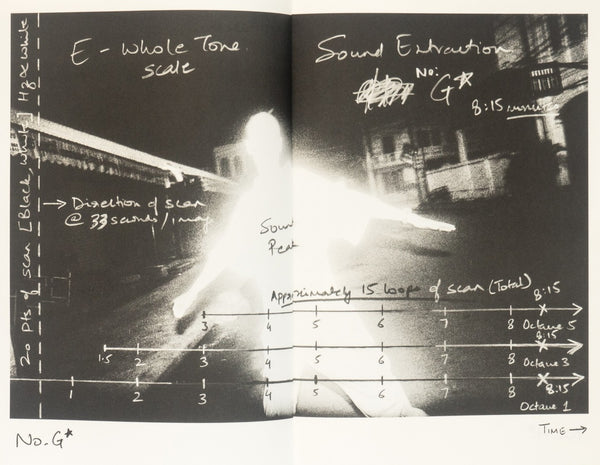 E - Whole Tone
scale
Sound Extraction
No:
G*
8:15 minutes
20 pts of scan [Black, white] Hz ∝ white
→ Direction of scan
@ 33 seconds / imag
Soun
Peat
Approximately 15 loops of scan (Total)
8:15
3 4 5 6 7 8 Octave 5
8:15
1.5 2 3 4 5 6 7 8 Octave 3
1 2 3 4 5 6 7 8 8:15
Octave 1
No. G*
TIME →